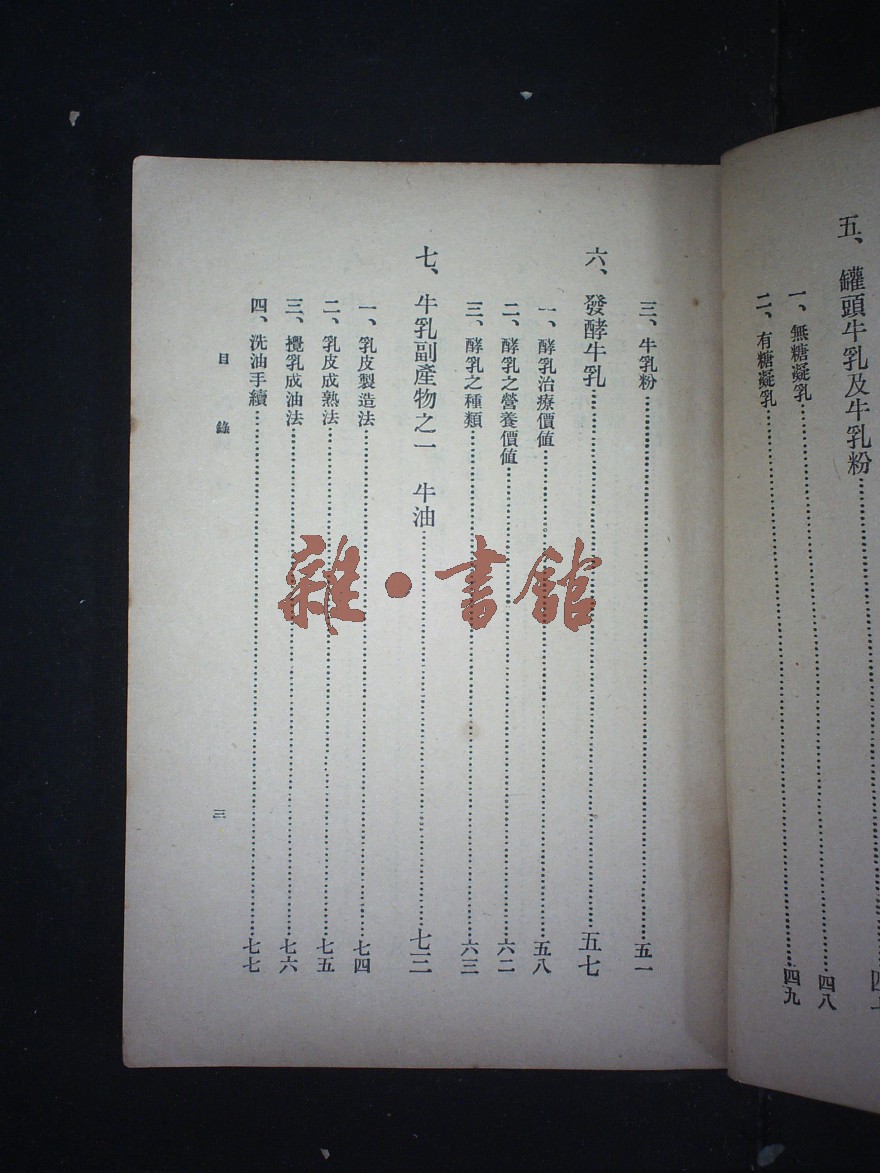 五、罐頭牛乳及牛乳粉………四
一、無糖凝乳………四八
二、有糖凝乳………四九
三、牛乳粉………五一
六、發酵牛乳………五七
一、酵乳治療價值………五八
二、酵乳之營養價值………六二
三、酵乳之種類………六三
七、牛乳副產物之一　牛油………七三
一、乳皮製造法………七四
二、乳皮成熟法………七五
三、攪乳成油法………七六
四、洗油手續………七七
目錄
三
雜·書館